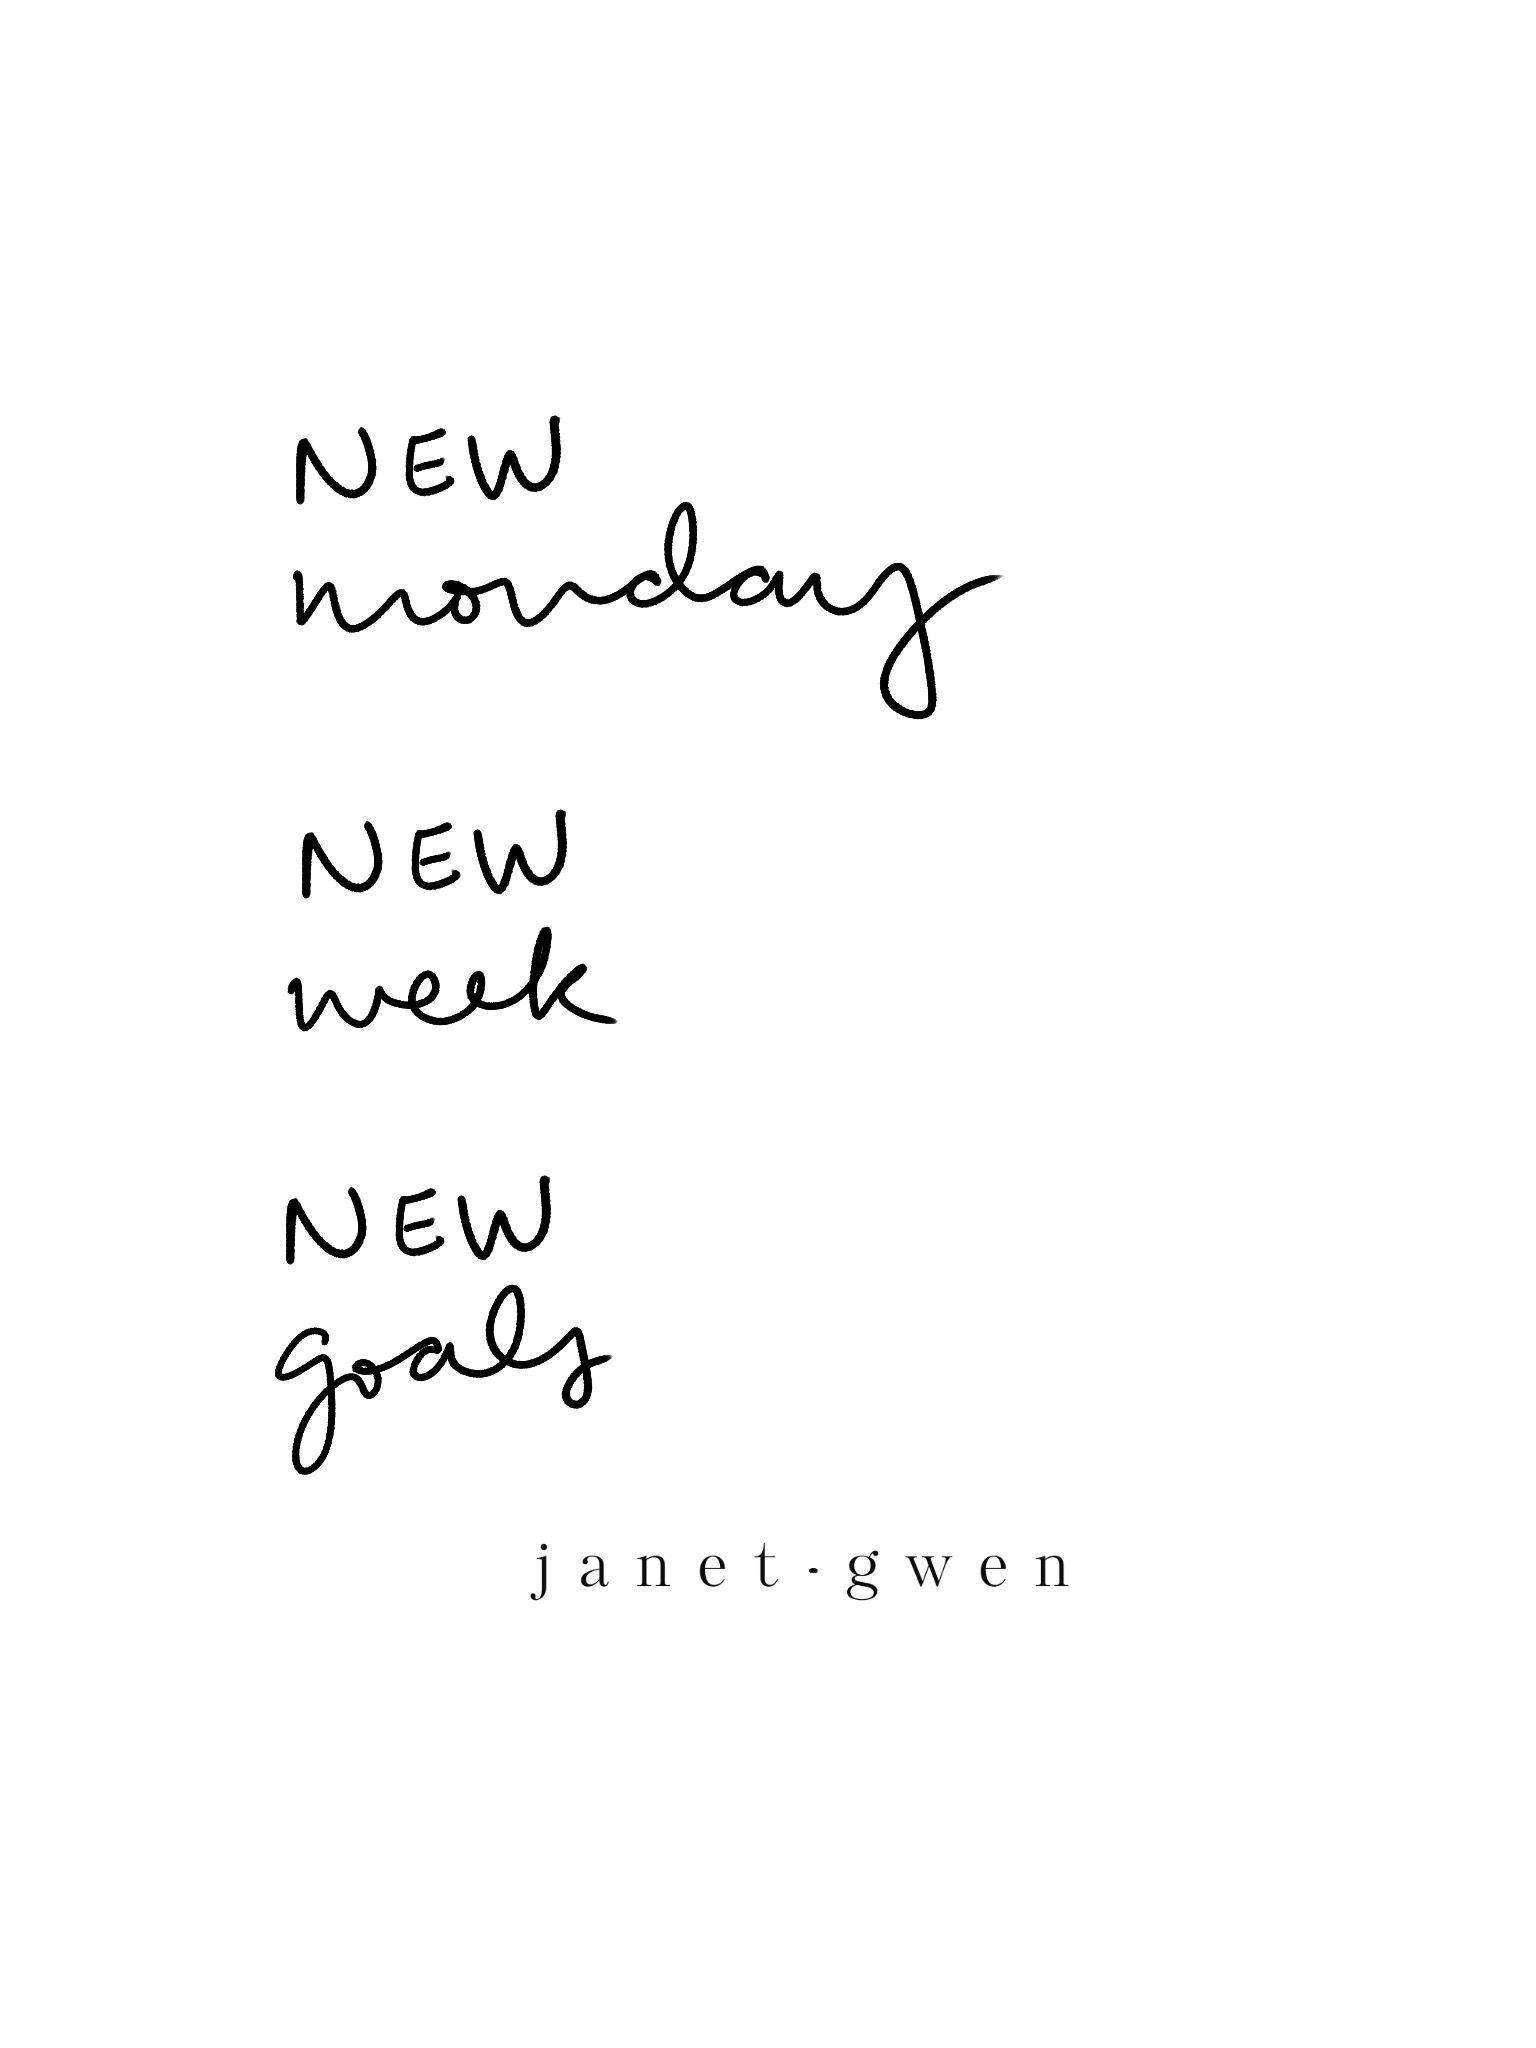 NEW
monday
NEW
week
NEW
goals
janet·gwen